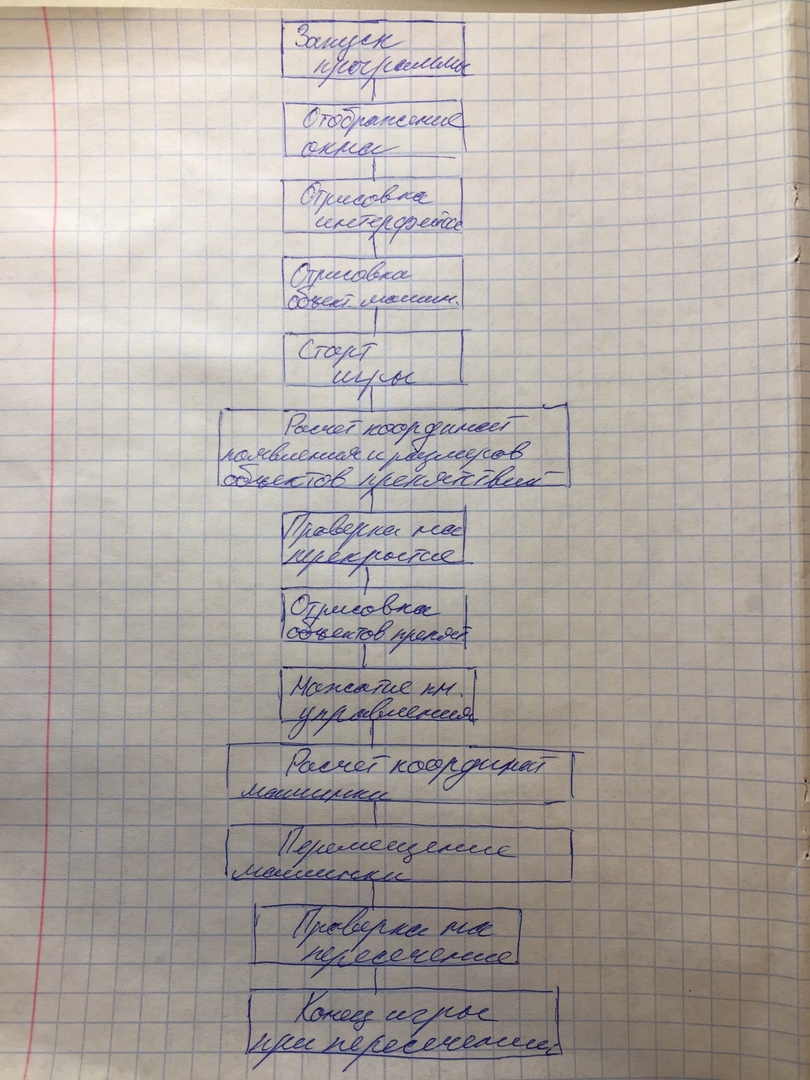 Запуск
программы
Отображение
окна
Отрисовка
интерфейса
Отрисовка
объект машин.
Старт
игры
Расчет координат
появления и размеров
объектов препятствий
Проверка на
перекрытие
Отрисовка
объектов препят
Нажатие кн.
управления
Расчет координат
машинки
Перемещение
машинки
Проверка на
пересечение
Конец игры
при пересечении